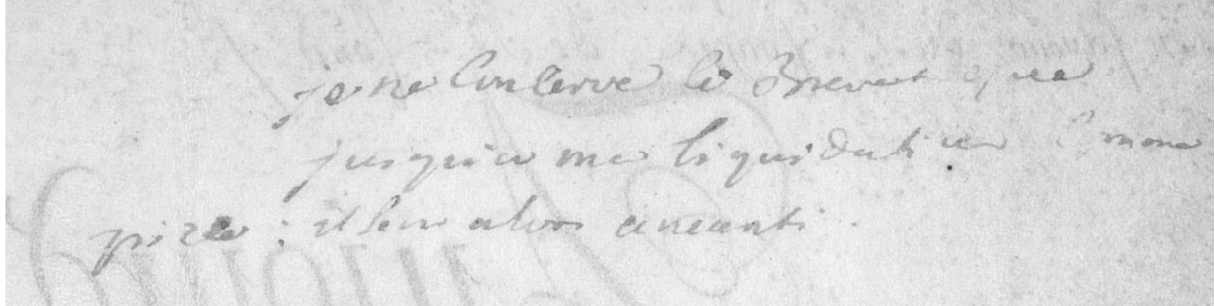 je ne Conserve le Brevet que
jusqu'a ma liquidation
pire : il sera alors aneanti.